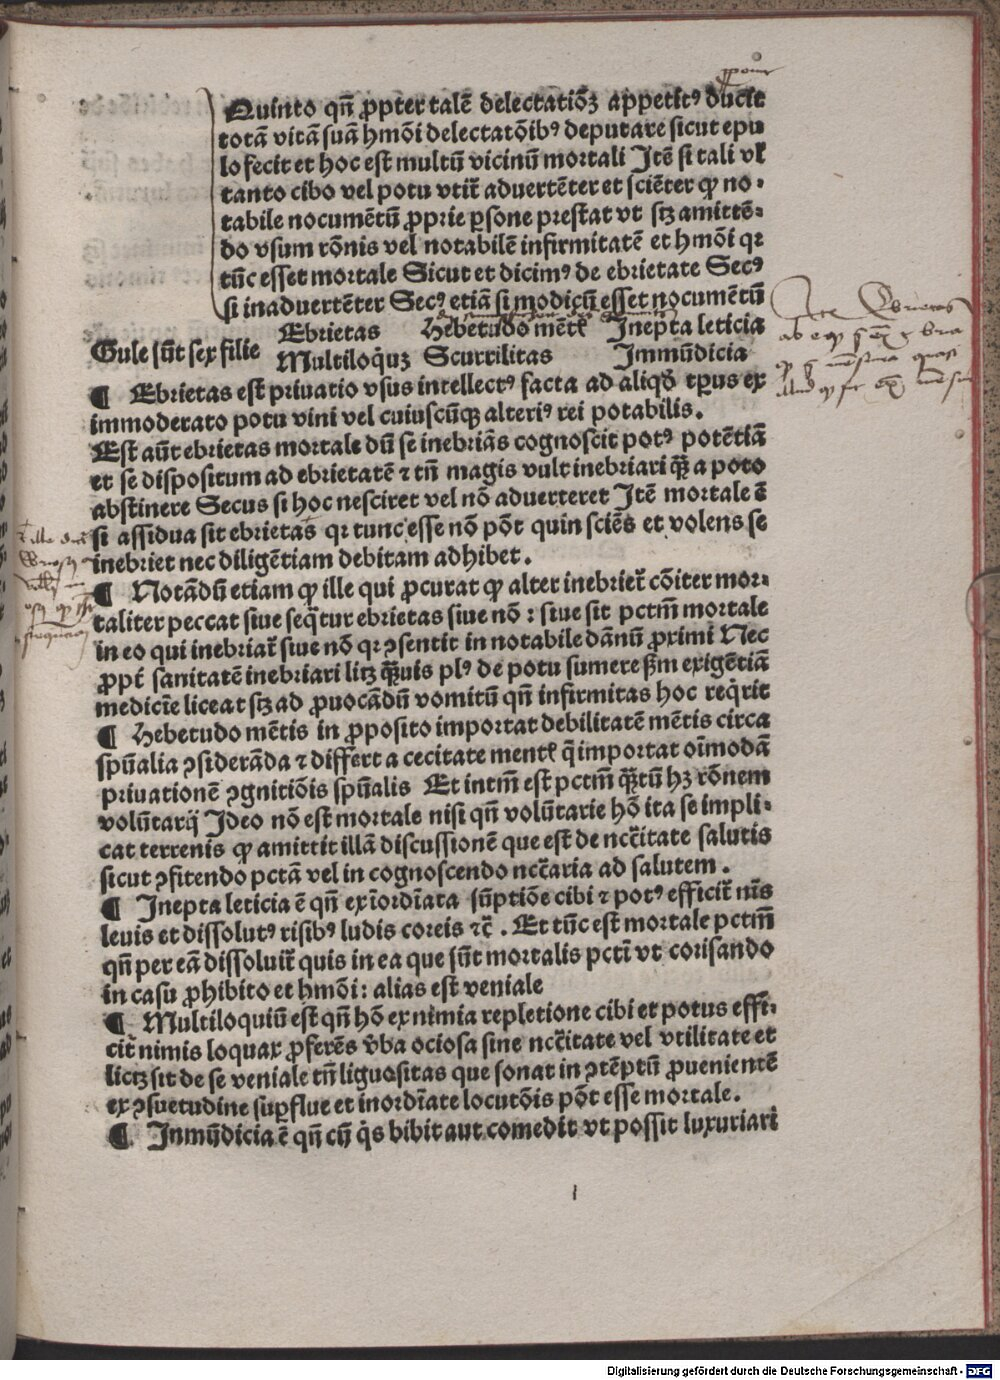 Quinto qn̄ ꝓpter talē delectatiōꝫ appetitꝰ ducit
totā vitā suā hmōi delectatōibꝰ deputare sicut epu
lo fecit et hoc est multū vicinū mortali Itē si tali vł
tanto cibo vel potu vtit̄ aduertēter et sciēter ꝙ no⸗
tabile nocumētū ꝓprie ꝑsone prestat vt sꝫ amittē⸗
do vsum rōnis vel notabilē infirmitatē et hmōi qꝛ
tūc esset mortale Sicut et dicimꝰ de ebrietate Secꝰ
si inaduertēter Secꝰ etiā si modicū esset nocumētū
Gule sūt sex filie
Ebrietas Hebetudo mētꝭ Inepta leticia
Multiloqͥuꝫ Scurrilitas Immūdicia
¶ Ebrietas est priuatio vsus intellectꝰ facta ad aliqd̄ tꝑus ex
immoderato potu vini vel cuiuscūqꝫ alteriꝰ rei potabilis.
Est aūt ebrietas mortale dū se inebriās cognoscit potꝰ potētiā
et se dispositum ad ebrietatē ⁊ tn̄ magis vult inebriari qͣꝫ a poto
abstinere Secus si hoc nesciret vel nō aduerteret Itē mortale ē
si assidua sit ebrietas qꝛ tunc esse nō pōt quin sciēs et volens se
inebriet nec diligētiam debitam adhibet.
¶ Notādū etiam ꝙ ille qui ꝓcurat ꝙ alter inebriet̄ cōiter mor⸗
taliter peccat siue seqͥtur ebrietas siue nō : siue sit pctm̄ mortale
in eo qui inebriat̄ siue nō qꝛ ꝯsentit in notabile dānū ꝓximi Nec
ꝓpt̄ sanitatē inebriari licꝫ qͣꝫuis plꝰ de potu sumere ẜm exigētiā
medicīe liceat sꝫ ad ꝓuocādū vomitū qn̄ infirmitas hoc reqͥrit
¶ Hebetudo mētis in ꝓposito importat debilitatē mētis circa
spūalia ꝯsiderāda ⁊ differt a cecitate mentꝭ q̄ importat oīmodā
priuationē ꝯgnitiōis spūalis Et intm̄ est pctm̄ qͣꝫtū hꝫ rōnem
volūtarij Ideo nō est mortale nisi qn̄ volūtarie hō ita se impli⸗
cat terrenis ꝙ amittit illā discussionē que est de ncc̄itate salutis
sicut ꝯfitendo pctā vel in cognoscendo ncc̄aria ad salutem.
¶ Inepta leticia ē qn̄ ex īordīata sūptiōe cibi ⁊ potꝰ efficit̄ nīs
leuis et dissolutꝰ risibꝰ ludis coreis ⁊c̄ . Et tūc est mortale pctm̄
qn̄ per eā dissoluit̄ quis in ea que sūt mortalis pctī vt corisando
in casu ꝓhibito et hmōi : alias est veniale
¶ Multiloquiū est qn̄ hō ex nimia repletione cibi et potus effi⸗
cit̄ nimis loquax ꝓferēs v̄ba ociosa sine ncc̄itate vel vtilitate et
licꝫ sit de se veniale tn̄ liguositas que sonat in ꝯtēptū ꝓuenientē
ex ꝯsuetudine suꝑflue et inordīate locutōis pōt esse mortale.
¶ Inmūdicia ē qn̄ cū qͥs bibit aut comedit vt possit luxuriari
Digitalisierung gefördert durch die Deutsche Forschungsgemeinschaft - DFG